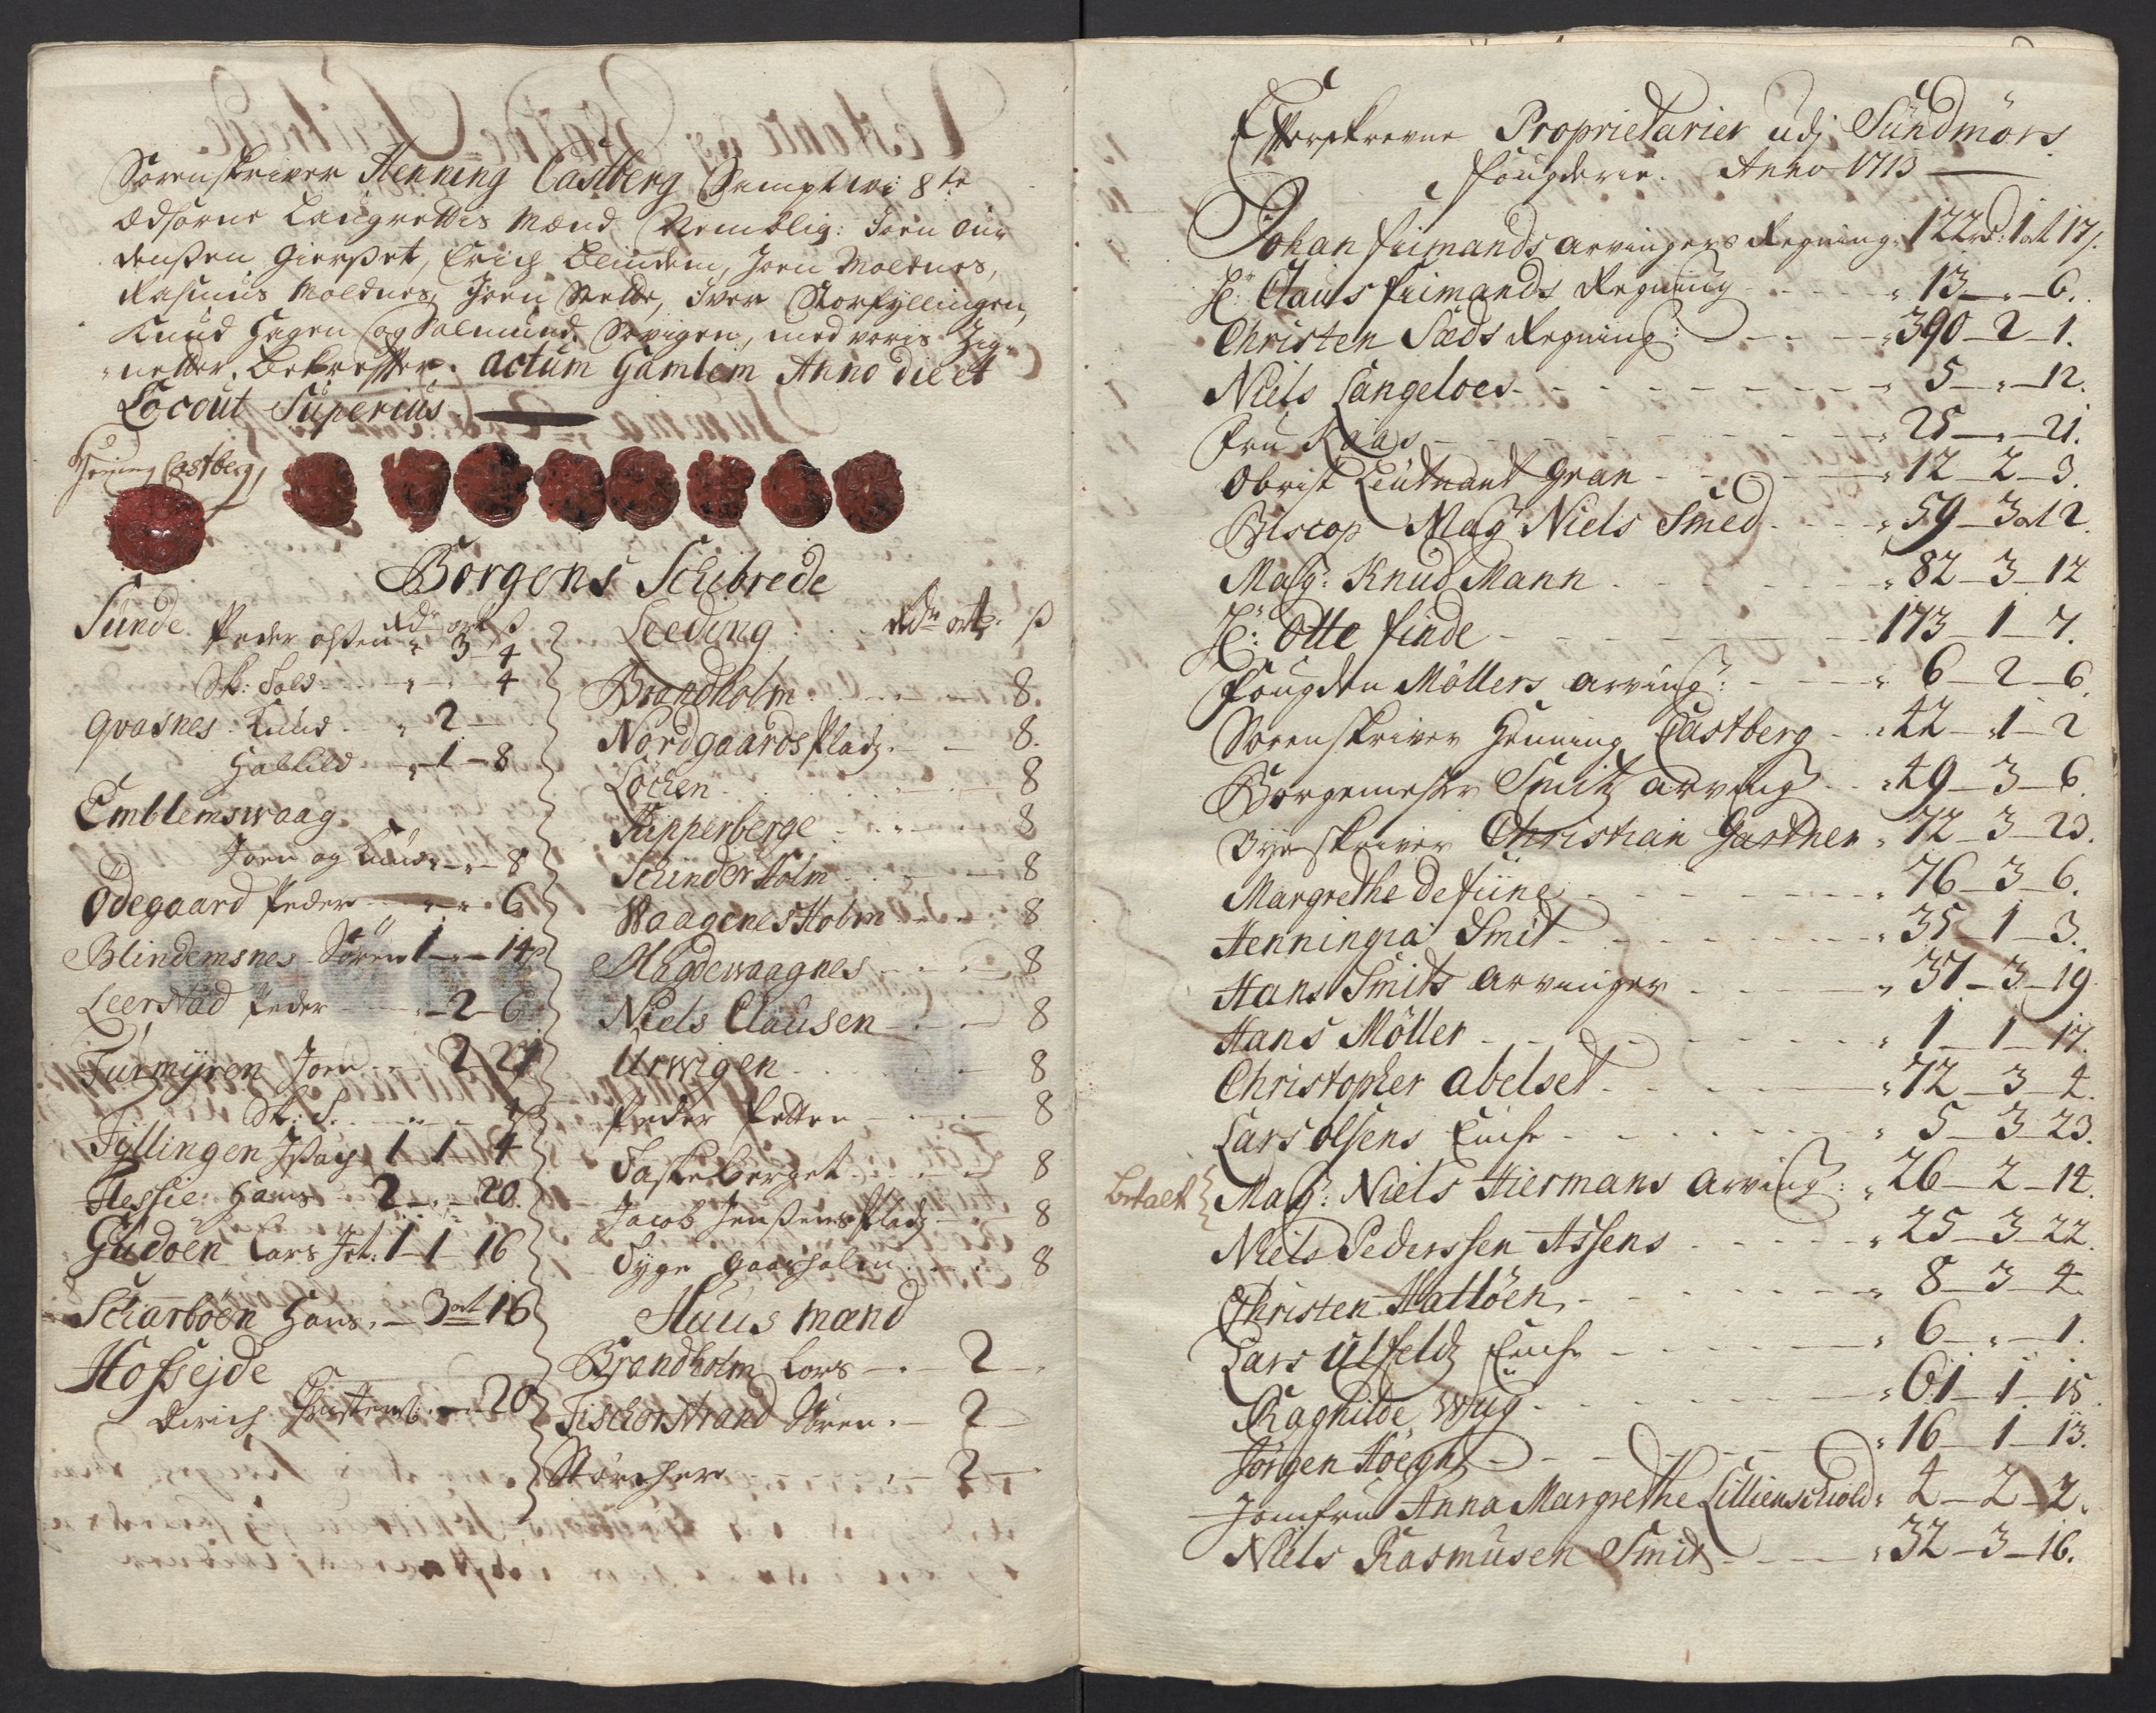 Sorenskriver Henning Castberg Sampt wi 8te
Edsorne Laugrettis Mænd Nemblig: Joen Knu
densen Gierset, Erich Blindem, Joen Moldnes,
Rasmus Moldnes, Joen Welde, Iver Storfyllingen,
Knud Hagen og Salmund Sevigen, med voris Zig-
netter, Bekreffter. Actum Gamlem Anno die et
Locout Superius.
Hening Castberg
Borgens Schibrede
Sunde Rdr ort ß
Peder olsen " 3 4
Sk: Sold " " 4
Qvasnes Knud " 2
Halkild " 1 8
Emblemswaag
Joen og Knud " " 8
Ödegaard Peder " " 6
Blindemsnes Sören 1 " 14
Leerstad Peder " 2 6
Furmÿren Joen " 2 21
Sk: S.
Fÿllingen Isach 1 1 4
Hessie Hans 2 " 20.
Gudöen Lars 1 1 16
Scharböen Hans " 3 ort 16
Hofsejde
Dirich Christens: " " 20
Leeding Rdr ort ß
Brandholm 8.
Nordgaards Pladz 8.
Löchen 8
Kipperberge 8
Schinder Holm 8
Waagenes Holm 8
Magdewaagnes 8
Niels Clausen 8
Urwigen 8
Peder Petter 8
Taskeberget 8
Jacob Jensens Pladz 8
Sÿge gaarholm 8
Huus mænd
Brandholm Lars 2
Fischerstrand Sören 2
Störcher 2
Efterskrevne Proprietarier udj Sundmörs
Fougderie. Anno 1713
Johan fiimands arvingers Regning " 122 rd: 1 ort 17 s.
Hr: Claus fiimands Regning " 13 " 6.
Christen Sæds Regning: " 390 2 1.
Niels Langeloes " 5 " 12.
Fru Kaas " 25 " 21.
Obrist Leutnant Gran " 12 2 3.
Biscop Mag Niels Smed " 59 3 ort 2.
Mag: Knud Mann " 82 3 12
Hr: Otte finde 173 1 7.
Fougden Möllers arving: " 6 2 6.
Sorenskriver Henning Castberg " 42 1 2
Borgemester Smitz arving " 49 3 6.
Bÿeskriver Christian Gartner " 72 3 23.
Margrethe de fiine " 76 3 6.
Henningia Smit " 35 1 3.
Hans Smits arvinger " 37 3 19
Hans Möller " 1 1 17.
Christopher Abelset " 72 3 4.
Lars olsens Enche " 5 3 23.
betalt Mag: Niels Hiermans arving: " 26 2 14.
Niels Pederssen Assens " 25 3 22.
Christen Hatlöen " 8 3 4.
Lars Ulfeldz Enche " 6 " 1.
Ragnilde Wug " 61 1 15.
Jörgen Höegh " 16 1 13.
Jomfru Anna Margrethe Lillienschiold " 4 2 2.
Niels Rasmusen Smit " 32 3 16.